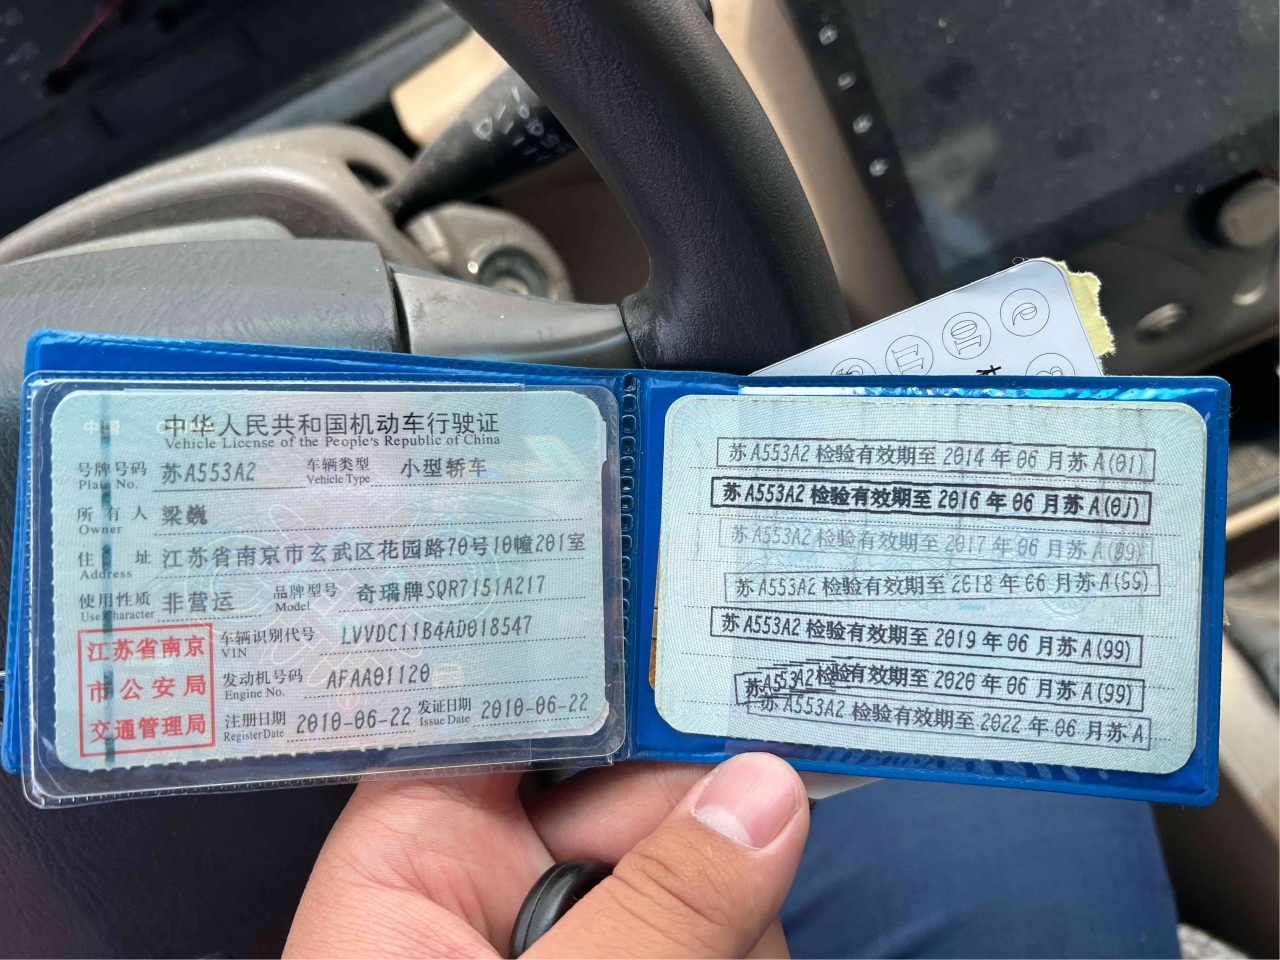 中华人民共和国机动车行驶证
Vehicle License of the People's Republic of China
号牌号码 苏A553A2 车辆类型 小型轿车
Plate No. Vehicle Type
所有人 梁巍
Owner
住址 江苏省南京市玄武区花园路70号10幢201室
Address
使用性质 非营运 品牌型号 奇瑞牌SQR7151A217
Use Character Model
车辆识别代号 LVVDC11B4AD018547
VIN
发动机号码 AFAA01120
Engine No.
注册日期 2010-06-22 发证日期 2010-06-22
Register Date Issue Date
江苏省南京
市公安局
交通管理局
苏A553A2 检验有效期至 2014 年 06 月苏 A(01)
苏A553A2 检验有效期至 2016 年 06 月苏 A(0J)
苏A553A2 检验有效期至 2017 年 06 月苏 A(99)
苏A553A2 检验有效期至 2018 年 06 月苏 A(SS)
苏A553A2 检验有效期至 2019 年 06 月苏 A(99)
苏A553A2 检验有效期至 2020 年 06 月苏 A(99)
苏A553A2 检验有效期至 2022 年 06 月苏 A